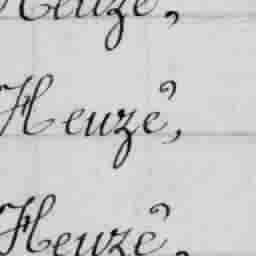 Heuzé,
Heuzé,
Heuzé,